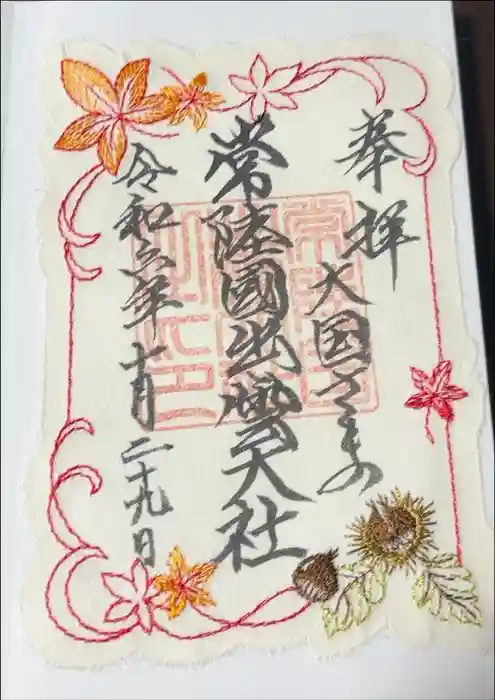 奉拝
大国さま
常陸國出雲大社
令和六年十月二十九日